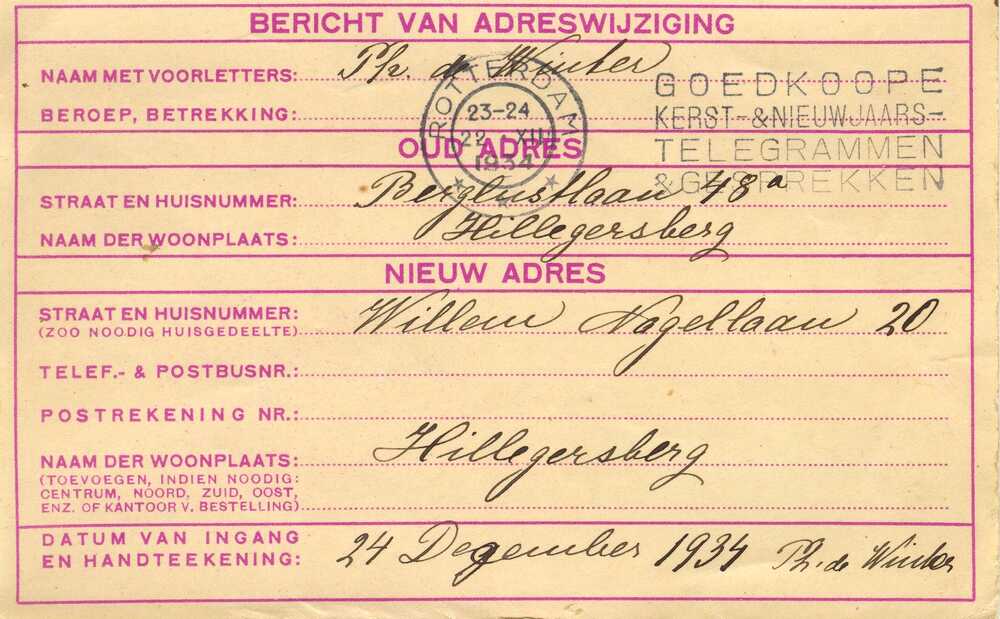 BERICHT VAN ADRESWIJZIGING
NAAM MET VOORLETTERS: Ph. de Winter
BEROEP, BETREKKING:
ROTTERDAM
23-24
22 XII
1934
GOEDKOOPE
KERST- & NIEUWJAARS-
TELEGRAMMEN
& GESPREKKEN
OUD ADRES
STRAAT EN HUISNUMMER: Berglustlaan 48a
NAAM DER WOONPLAATS: Hillegersberg
NIEUW ADRES
STRAAT EN HUISNUMMER: Willem Nagellaan 20
(ZOO NOODIG HUISGEDEELTE)
TELEF.- & POSTBUSNR.:
POSTREKENING NR.:
NAAM DER WOONPLAATS: Hillegersberg
(TOEVOEGEN, INDIEN NOODIG:
CENTRUM, NOORD, ZUID, OOST,
ENZ. OF KANTOOR V. BESTELLING)
DATUM VAN INGANG
EN HANDTEEKENING: 24 Dezember 1934 Ph. de Winter